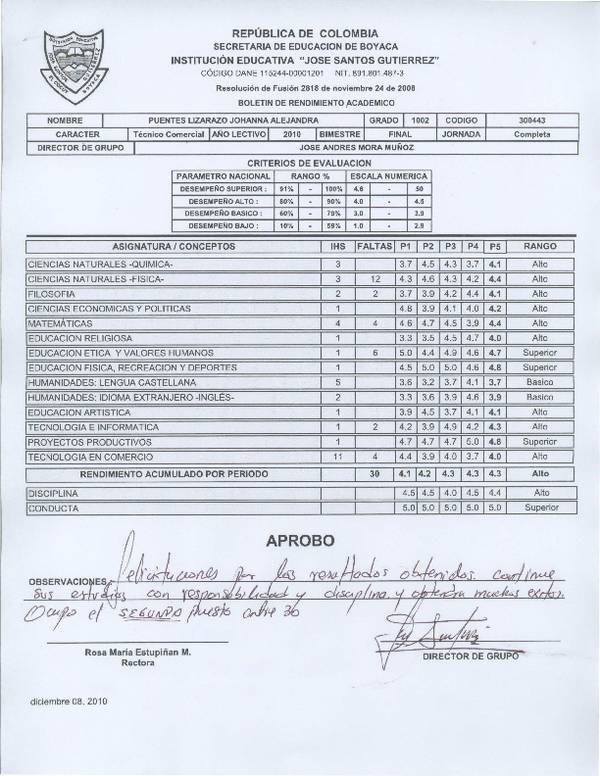 REPÚBLICA DE COLOMBIA
SECRETARIA DE EDUCACION DE BOYACA
INSTITUCIÓN EDUCATIVA "JOSE SANTOS GUTIERREZ"
CÓDIGO DANE 115244-00001201 NIT. 891.801.487-3
Resolución de Fusión 2818 de noviembre 24 de 2008
BOLETIN DE RENDIMIENTO ACADEMICO
NOMBRE PUENTES LIZARAZO JOHANNA ALEJANDRA GRADO 1002 CODIGO 300443
CARACTER Técnico Comercial AÑO LECTIVO 2010 BIMESTRE FINAL JORNADA Completa
DIRECTOR DE GRUPO JOSE ANDRES MORA MUÑOZ
CRITERIOS DE EVALUACION
PARAMETRO NACIONAL RANGO % ESCALA NUMERICA
DESEMPEÑO SUPERIOR : 91% - 100% 4.6 - 50
DESEMPEÑO ALTO : 80% - 90% 4.0 - 4.5
DESEMPEÑO BASICO : 60% - 79% 3.0 - 3.9
DESEMPEÑO BAJO : 10% - 59% 1.0 - 2.9
ASIGNATURA / CONCEPTOS IHS FALTAS P1 P2 P3 P4 P5 RANGO
CIENCIAS NATURALES -QUIMICA- 3 3.7 4.5 4.3 3.7 4.1 Alto
CIENCIAS NATURALES -FISICA- 3 12 4.3 4.6 4.3 4.2 4.4 Alto
FILOSOFIA 2 2 3.7 3.9 4.2 4.4 4.1 Alto
CIENCIAS ECONOMICAS Y POLITICAS 1 4.8 3.9 4.1 4.0 4.2 Alto
MATEMÁTICAS 4 4 4.6 4.7 4.5 3.9 4.4 Alto
EDUCACION RELIGIOSA 1 3.3 3.5 4.5 4.7 4.0 Alto
EDUCACION ETICA Y VALORES HUMANOS 1 6 5.0 4.4 4.9 4.6 4.7 Superior
EDUCACION FISICA, RECREACION Y DEPORTES 1 4.5 5.0 5.0 4.6 4.8 Superior
HUMANIDADES: LENGUA CASTELLANA 5 3.6 3.2 3.7 4.1 3.7 Basico
HUMANIDADES: IDIOMA EXTRANJERO -INGLÉS- 2 3.3 3.6 3.9 4.6 3.9 Basico
EDUCACION ARTISTICA 1 3.9 4.5 3.7 4.1 4.1 Alto
TECNOLOGIA E INFORMATICA 1 2 4.2 3.9 4.9 4.2 4.3 Alto
PROYECTOS PRODUCTIVOS 1 4.7 4.7 4.7 5.0 4.8 Superior
TECNOLOGIA EN COMERCIO 11 4 4.4 3.9 4.0 3.7 4.0 Alto
RENDIMIENTO ACUMULADO POR PERIODO 30 4.1 4.2 4.3 4.3 4.3 Alto
DISCIPLINA 4.5 4.5 4.0 4.5 4.4 Alto
CONDUCTA 5.0 5.0 5.0 5.0 5.0 Superior
APROBO
OBSERVACIONES: Felicitaciones por los resultados obtenidos. continue
sus estudios con responsabilidad y disciplina y obtendra muchos exitos.
Ocupo el SEGUNDO puesto entre 36
Rosa María Estupiñan M.
Rectora
DIRECTOR DE GRUPO
diciembre 08, 2010